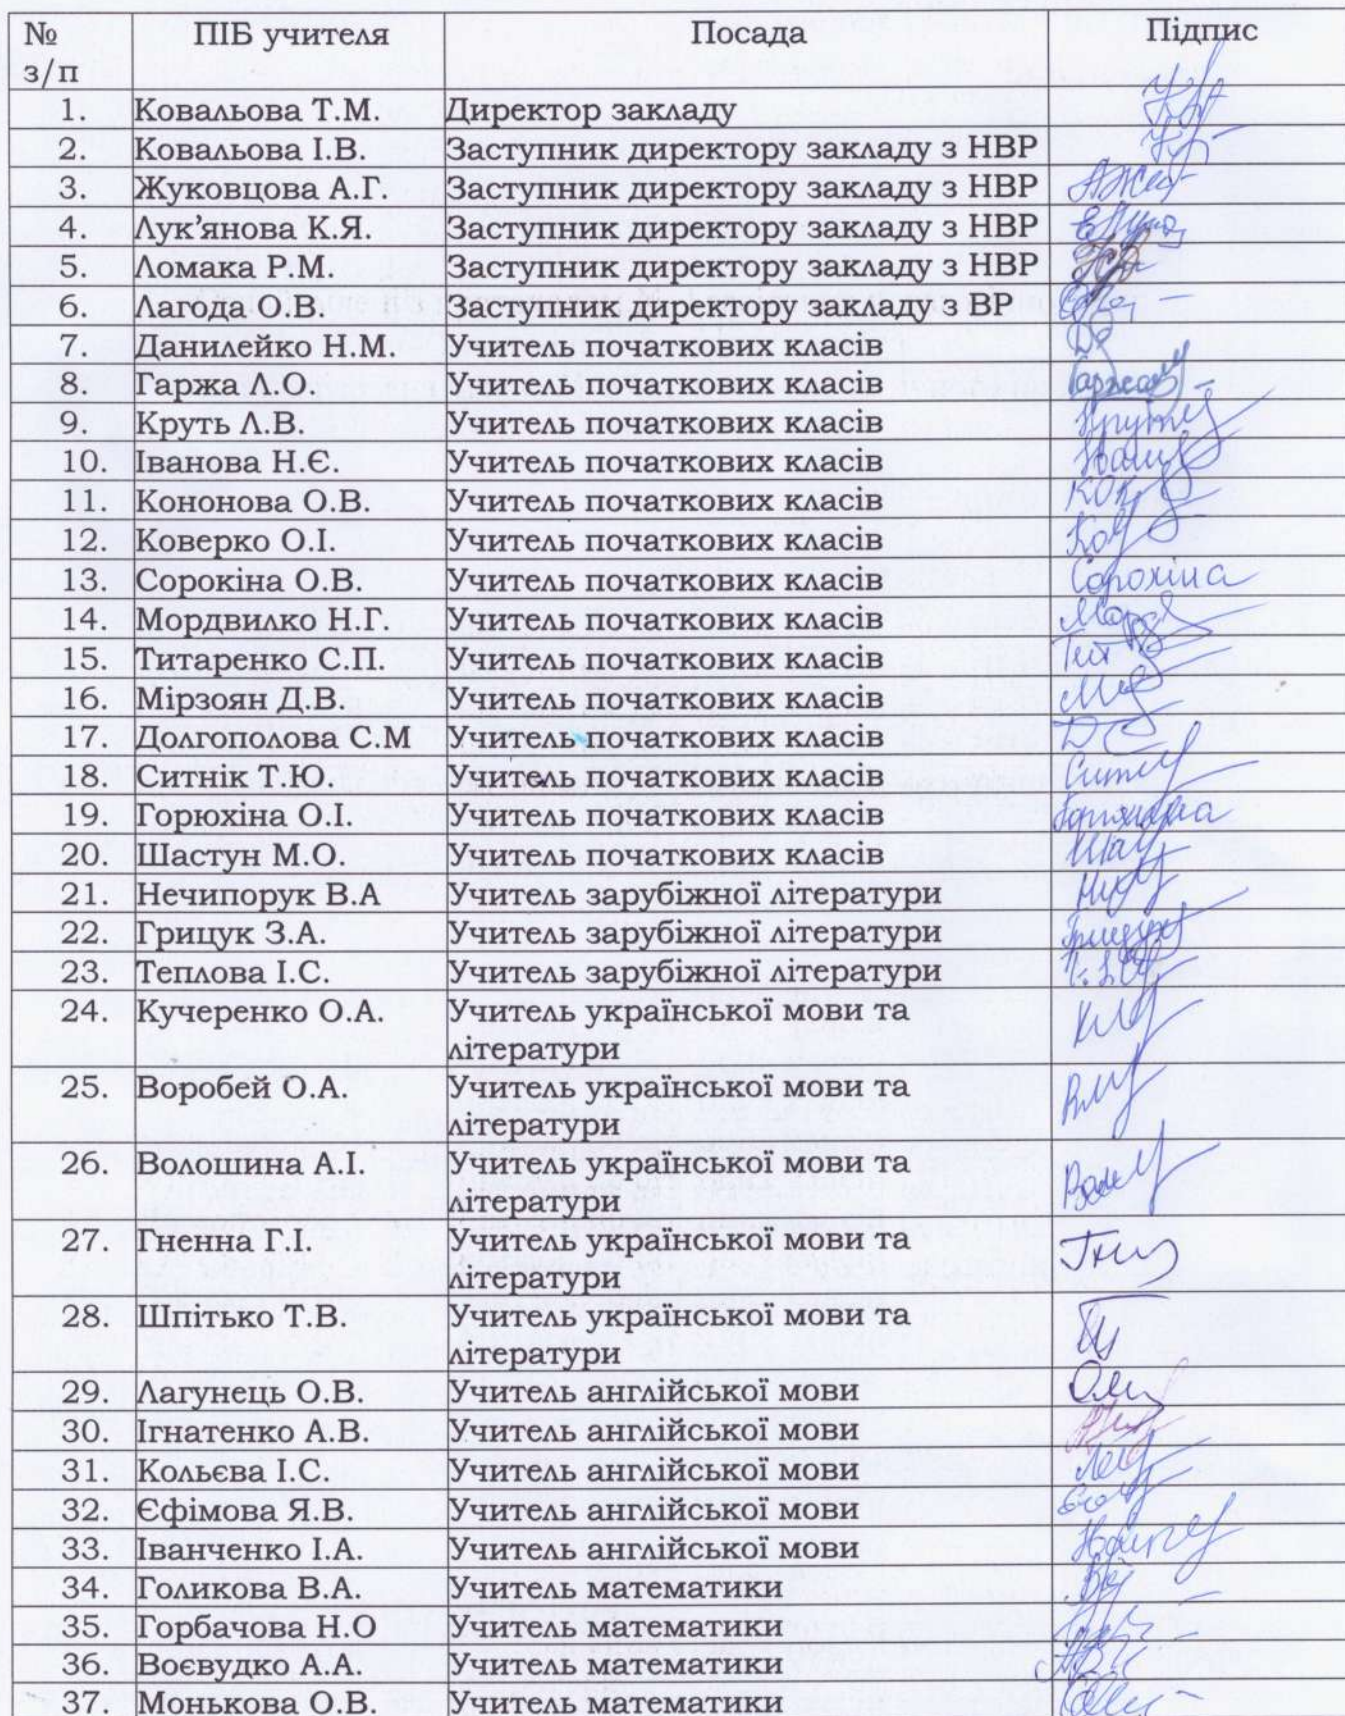 № ПІБ учителя Посада Підпис
з/п
1. Ковальова Т.М. Директор закладу
2. Ковальова І.В. Заступник директору закладу з НВР
3. Жуковцова А.Г. Заступник директору закладу з НВР
4. Лук’янова К.Я. Заступник директору закладу з НВР
5. Ломака Р.М. Заступник директору закладу з НВР
6. Лагода О.В. Заступник директору закладу з ВР
7. Данилейко Н.М. Учитель початкових класів
8. Гаржа Л.О. Учитель початкових класів
9. Круть Л.В. Учитель початкових класів
10. Іванова Н.Є. Учитель початкових класів
11. Кононова О.В. Учитель початкових класів
12. Коверко О.І. Учитель початкових класів
13. Сорокіна О.В. Учитель початкових класів Сорокіна
14. Мордвилко Н.Г. Учитель початкових класів
15. Титаренко С.П. Учитель початкових класів
16. Мірзоян Д.В. Учитель початкових класів
17. Долгополова С.М Учитель початкових класів
18. Ситнік Т.Ю. Учитель початкових класів
19. Горюхіна О.І. Учитель початкових класів
20. Шастун М.О. Учитель початкових класів
21. Нечипорук В.А Учитель зарубіжної літератури
22. Грицук З.А. Учитель зарубіжної літератури
23. Теплова І.С. Учитель зарубіжної літератури
24. Кучеренко О.А. Учитель української мови та
літератури
25. Воробей О.А. Учитель української мови та
літератури
26. Волошина А.І. Учитель української мови та
літератури
27. Гненна Г.І. Учитель української мови та
літератури
28. Шпітько Т.В. Учитель української мови та
літератури
29. Лагунець О.В. Учитель англійської мови
30. Ігнатенко А.В. Учитель англійської мови
31. Кольєва І.С. Учитель англійської мови
32. Єфімова Я.В. Учитель англійської мови
33. Іванченко І.А. Учитель англійської мови
34. Голикова В.А. Учитель математики
35. Горбачова Н.О Учитель математики
36. Воєвудко А.А. Учитель математики
37. Монькова О.В. Учитель математики